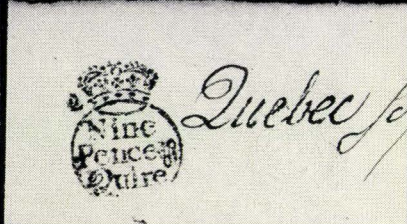 Nine
Pence ⅌
Quire
Quebec